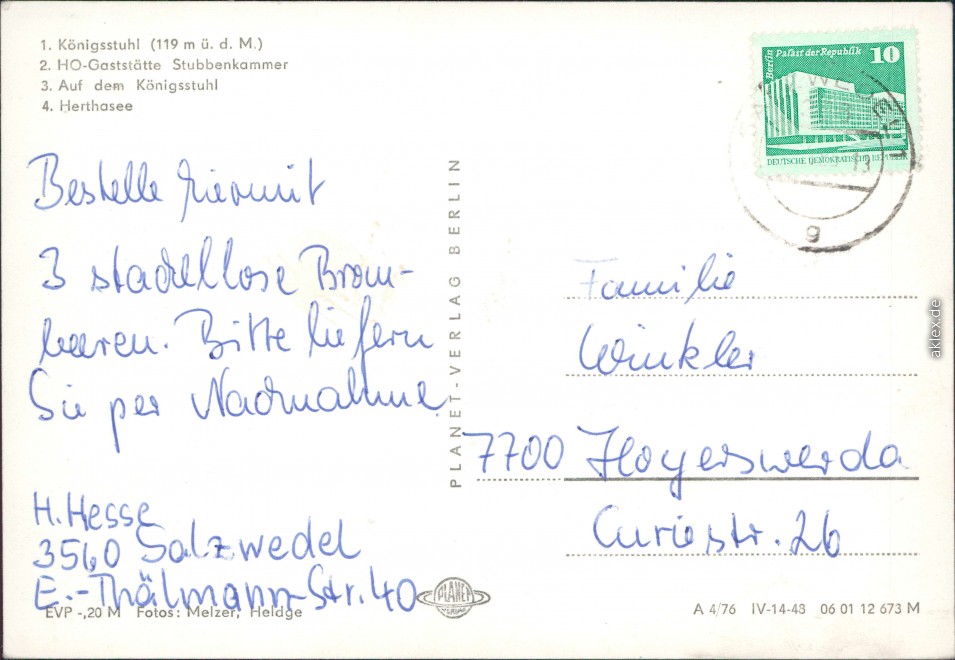 1. Königsstuhl (119 m ü. d. M.)
2. HO-Gaststätte Stubbenkammer
3. Auf dem Königsstuhl
4. Herthasee
Berlin Palast der Republik 10
DEUTSCHE DEMOKRATISCHE REPUBLIK
g
Bestelle hiermit
3 stachellose Brom-
beeren. Bitte liefern
Sie per Nachnahme.
H. Hesse
3560 Salzwedel
E.-Thälmann-Str. 40
PLANET-VERLAG BERLIN
Familie
Winkler
7700 Hoyerswerda
Curiestr. 26
EVP -,20 M Fotos: Melzer, Heldge
PLANET
BERLIN
A 4/76 IV-14-48 06 01 12 673 M
aklex.de